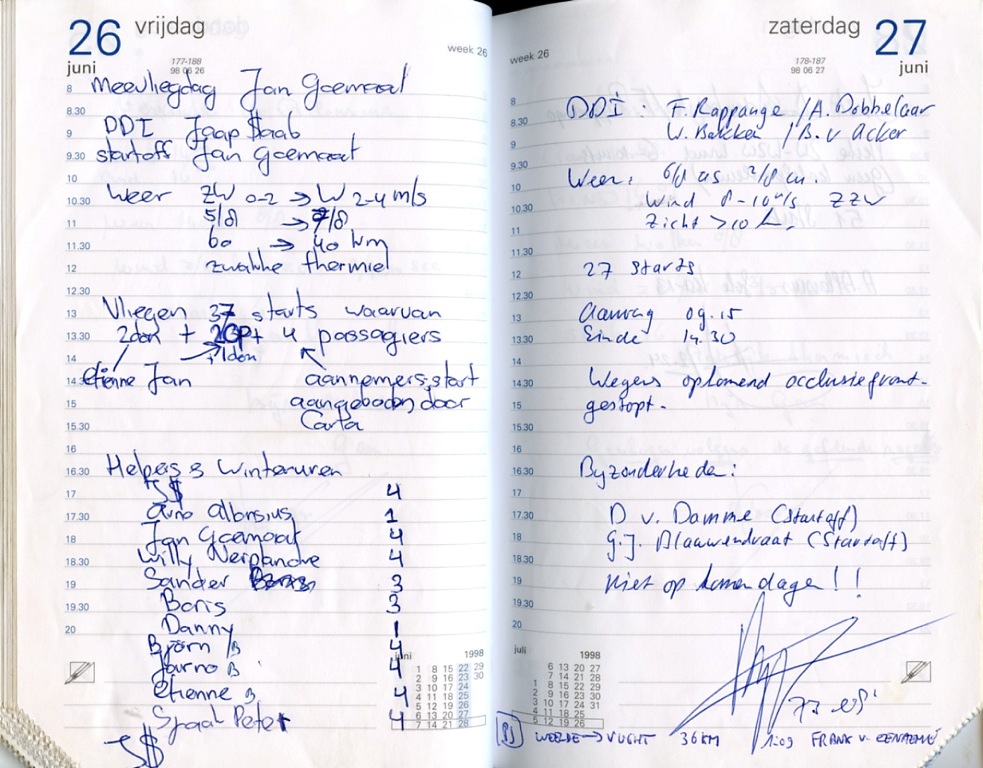 26 vrijdag
juni
177-188
98 06 26
week 26
8 meevliegdag Jan Goemaat
8.30
9 DDI Jaap $aab
9.30 startoff Jan Goemaat
10
10.30 weer ZW 0-2 → W 2-4 m/s
11 5/8 → 7/8
11.30 60 → 40 km
12 zwakke thermiel
12.30
13 Vliegen 37 starts waarvan
13.30 2don + 2GP+ 4 passagiers
+ 1don
14
14.30 etienne Jan aannemers, start
15 aangeboden door
15.30 Carta
16
16.30 Helpers & winteruren
17 J$ 4
17.30 Arno Albrsius 1
18 Jan Goemaat 4
18.30 Willy Nerplancke 4
19 Sander 3
19.30 Boris 3
20 Danny 1
Björn B 4
Jarno B 4
etienne B 4
Sjaak Peter 4
J$
juni 1998
1 8 15 22 29
2 9 16 23 30
3 10 17 24
4 11 18 25
5 12 19 26
6 13 20 27
7 14 21 28
zaterdag 27
juni
178-187
98 06 27
week 26
8 DDI : F. Rappange / A. Dobbelaar
8.30
9 W. Bakker / B. v Acker
9.30
10 Weer: 6/8 as 2/8 cu.
10.30 Wind 8-10 m/s ZZW
11 Zicht >10 km
11.30
12 27 starts
12.30
13 Aanvang 09.15
13.30 Einde 14.30
14
14.30 Wegens opkomend occlusiefront-
15 gestopt.
15.30
16
16.30 Byzonderheden:
17
17.30 D v. Damme (startoff)
18 G.J. Blaauwendraat (Startoff)
18.30
19 niet op komen dagen!!
19.30
20
juli 1998
6 13 20 27
7 14 21 28
1 8 15 22 29
2 9 16 23 30
3 10 17 24 31
4 11 18 25
5 12 19 26
WEELDE → VUGHT 36KM 1:09 FRANK v.